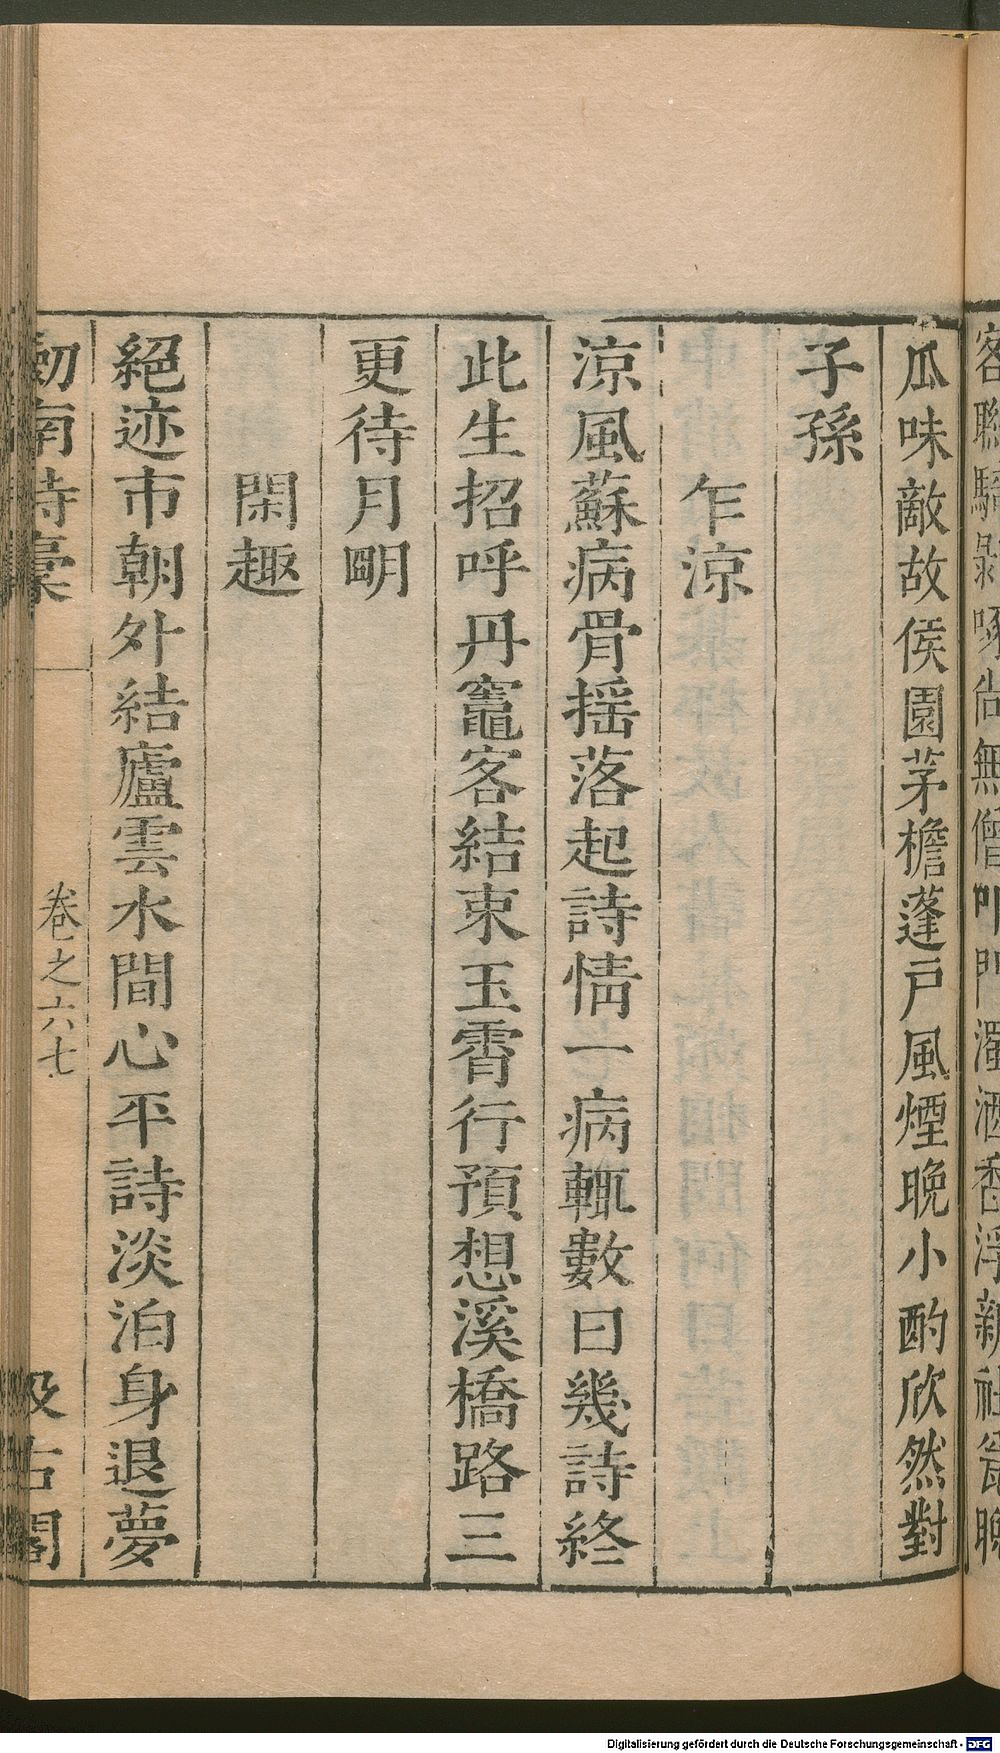 客聯騎剥啄尚無僧叩門濁酒香浮新社瓮晚
瓜味敵故侯園茅檐蓬戸風煙晚小酌欣然對
子孫
乍涼
涼風蘇病骨揺落起詩情一病輒數日幾詩終
此生招呼丹竈客結束玉霄行預想溪橋路三
更待月明
閑趣
絕迹市朝外結廬雲水間心平詩淡泊身退夢
劒南詩稾
卷之六七
汲古閣
Digitalisierung gefördert durch die Deutsche Forschungsgemeinschaft - DFG